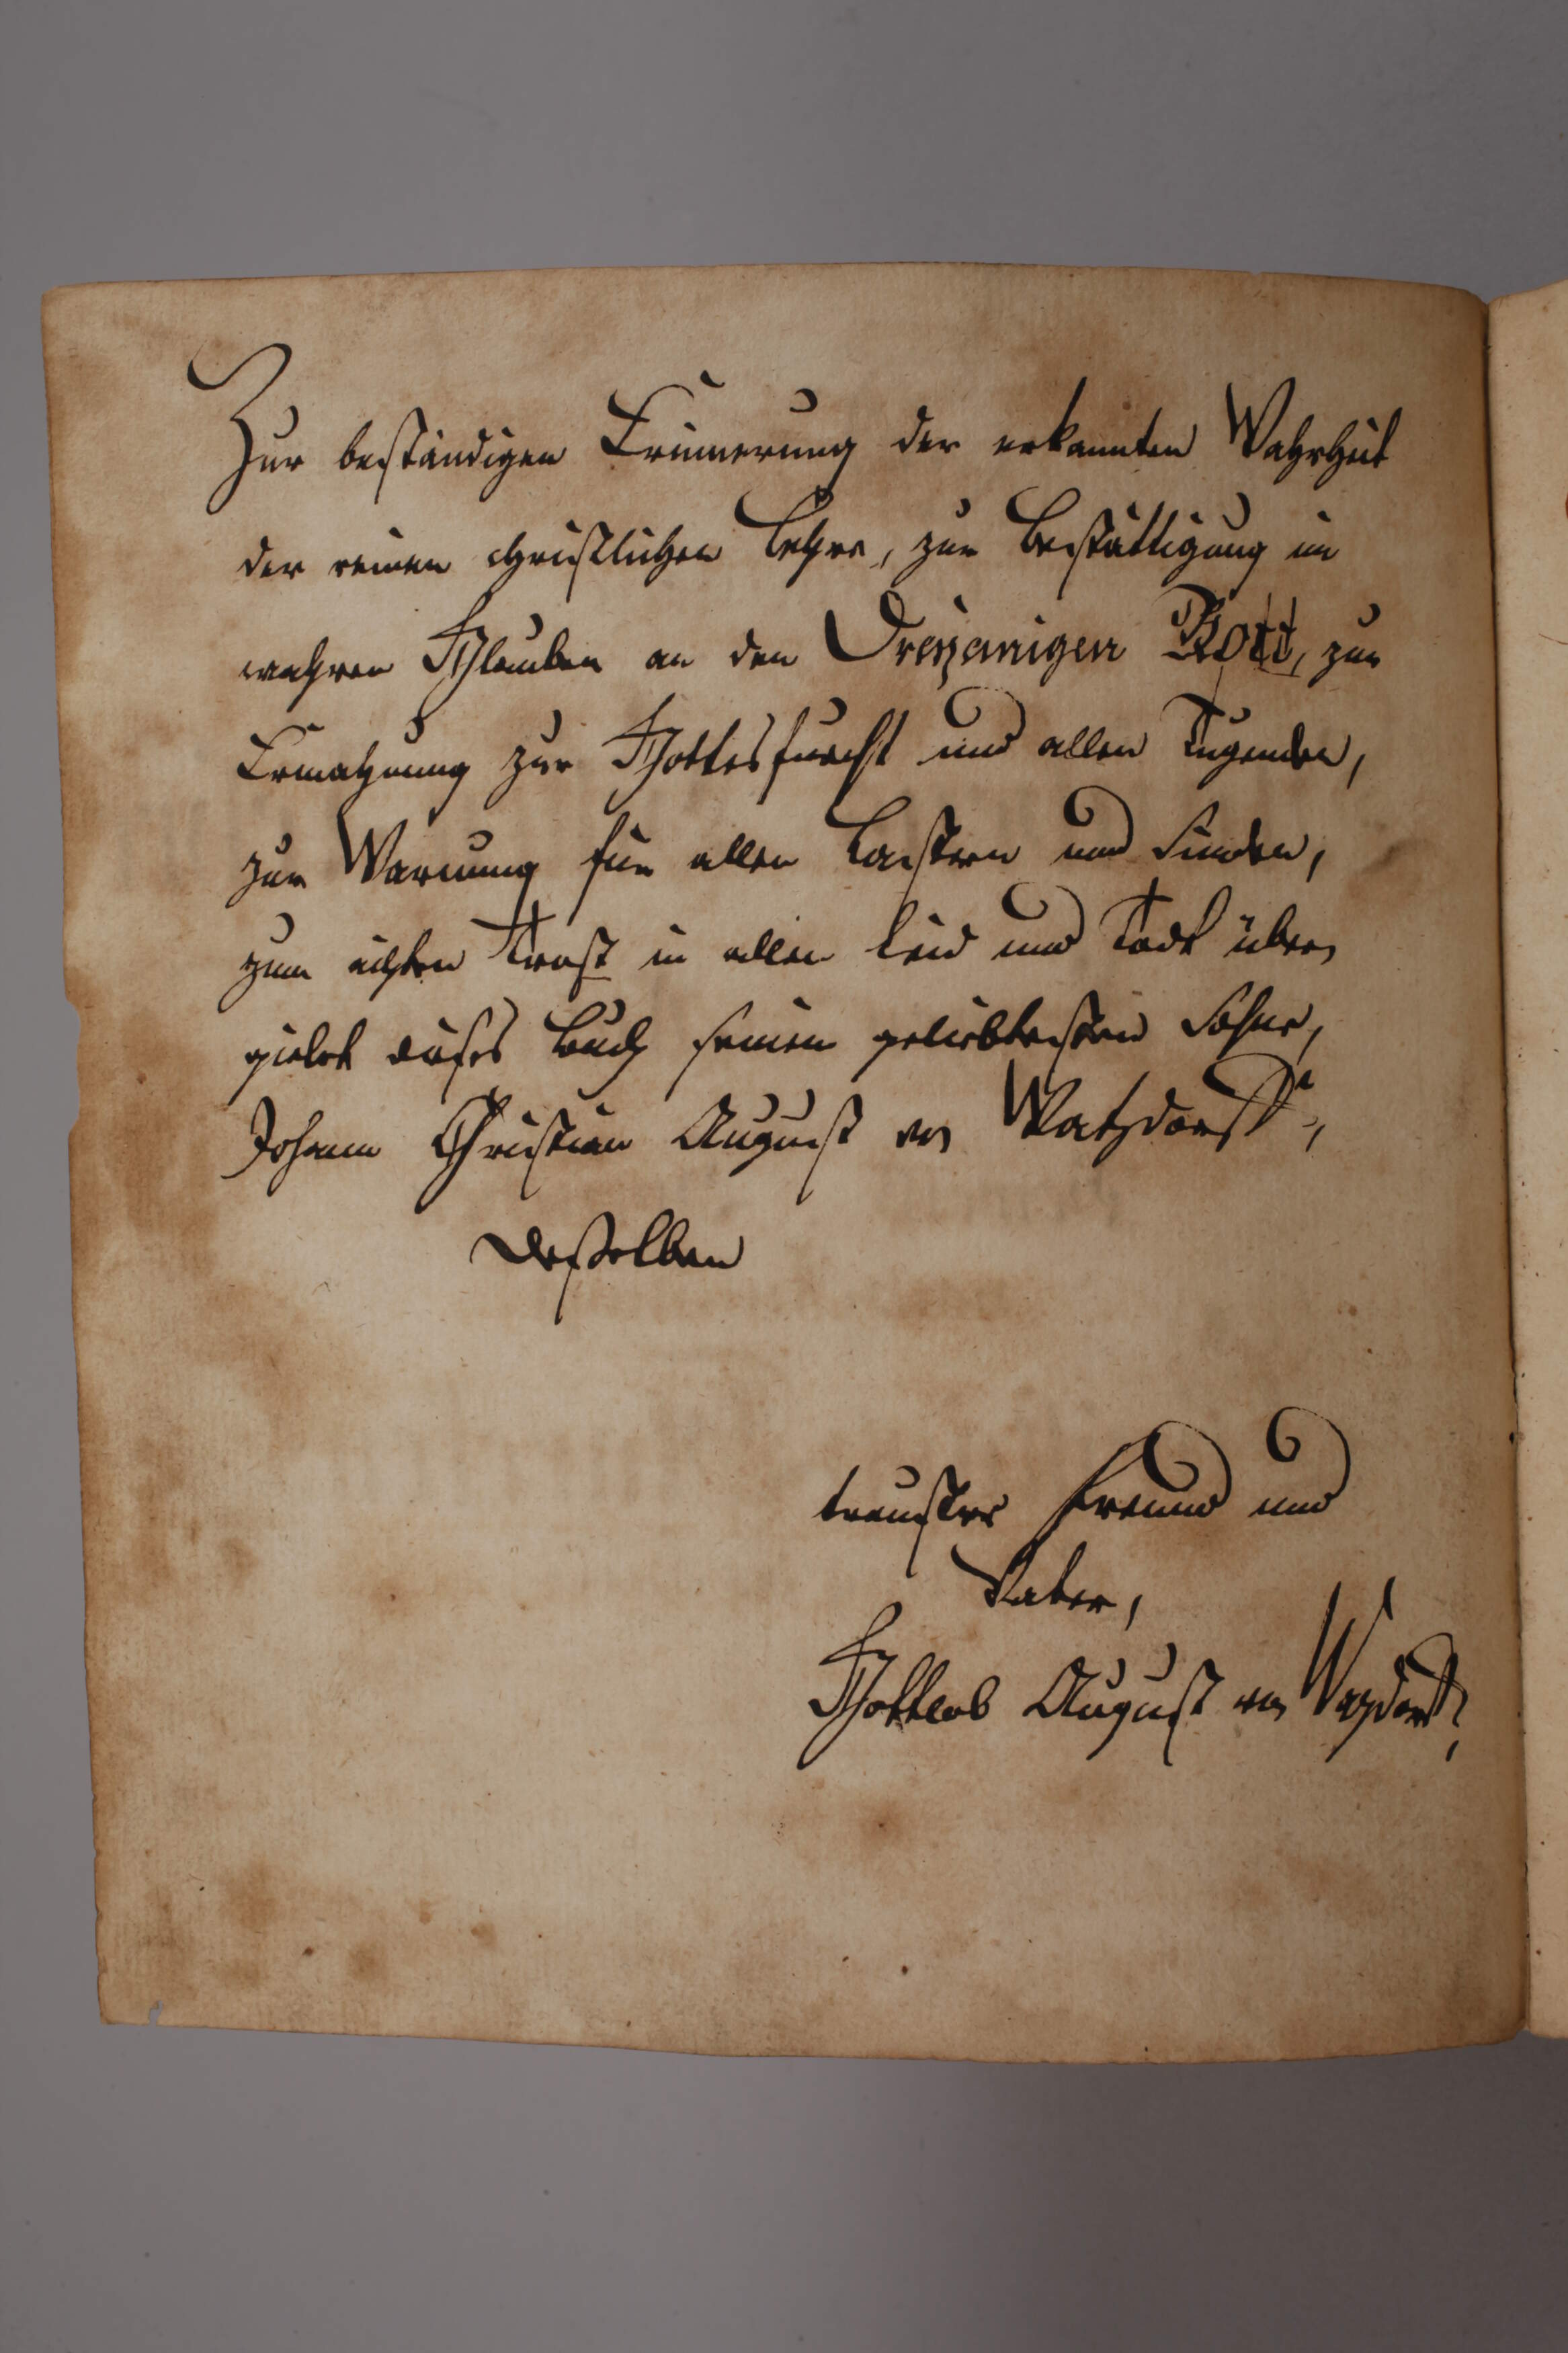 Zur beständigen Erinnerung der erkannten Wahrheit
der reinen christlichen Lehre, zur Bestättigung im
wahren Glauben an den Dreyeinigen Gott, zur
Ermahnung zur Gottesfurcht und allen Tugenden,
zur Warnung für allen Lastern und Sünden,
zum ächten Trost in allen Leid und Todt über
giebet dieses Buch seinem geliebtesten Sohne,
Johann Christian August von Watzdorff,
desselben
treuster Freund und
Vater,
Gottlob August von Wazdorff